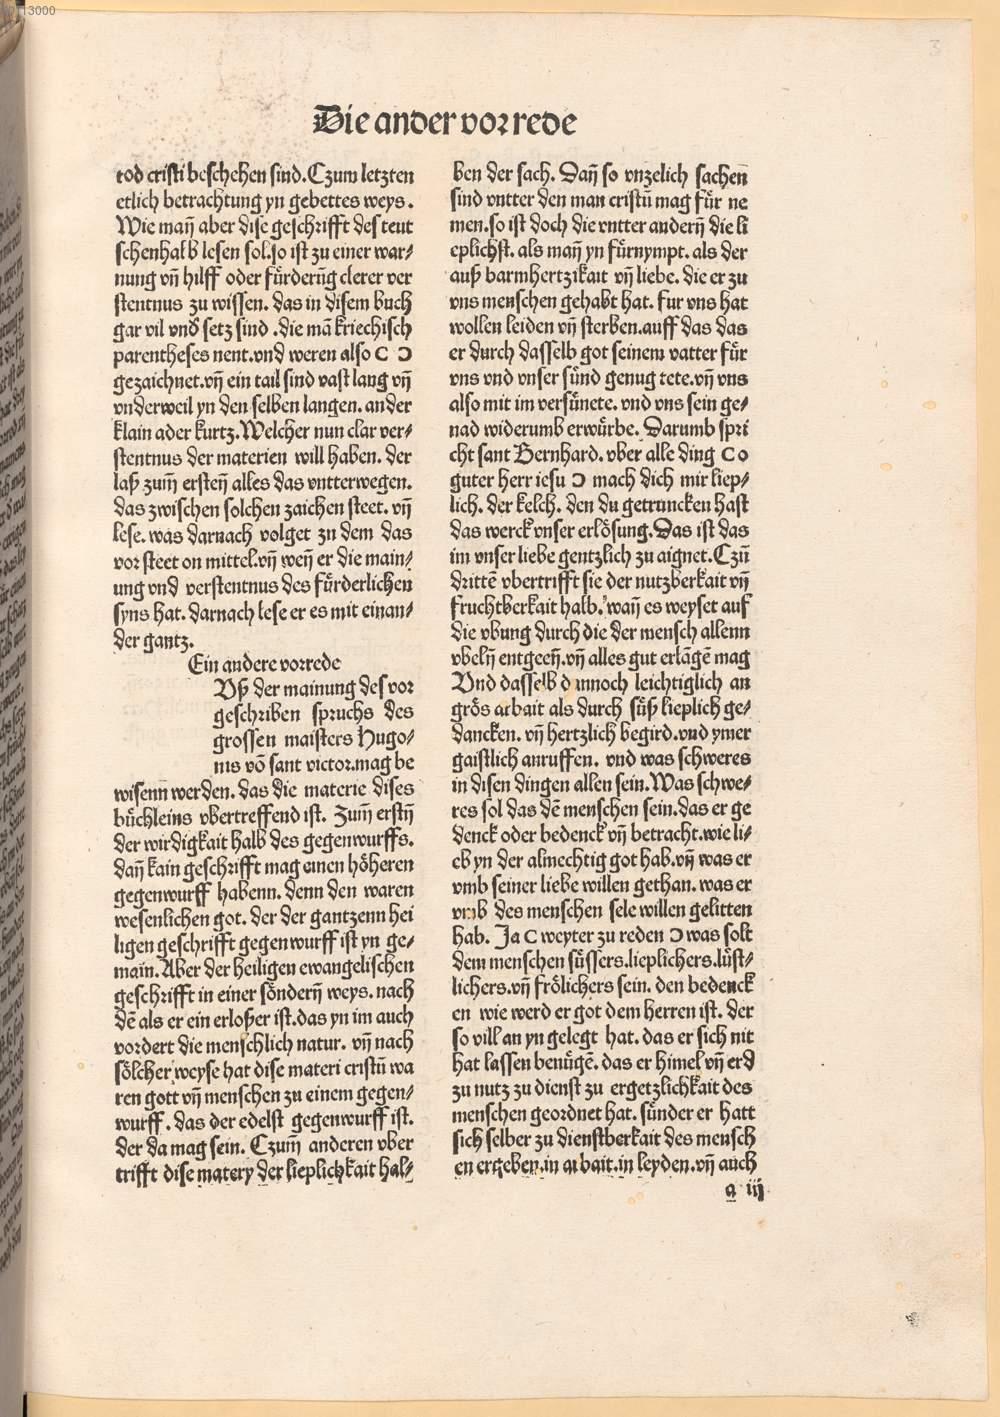 Die ander vorrede
tod cristi beschehen sind. Czum letzten
etlich betrachtung yn gebettes weys.
Wie man̄ aber dise geschrifft des teut
schenhalb lesen sol. so ist zu einer war⸗
nung vn̄ hilff oder fu̍rderūg clerer ver
stentnus zu wissen. das in disem buch
gar vil vnd̕ setz sind .die mā kriechisch
parentheses nent. vnd weren also C Ɔ
gezaichnet. vn̄ ein tail sind vast lang vn̄
vnderweil yn den selben langen. ander
klain ader kurtz. Welcher nun clar ver⸗
stentnus der materien will haben. der
laß zum̄ ersten̄ alles das vntterwegen.
das zwischen solchen zaichen steet. vn̄
lese. was darnach volget zu dem das
vor steet on mittel. vn̄ wen̄ er die main⸗
ung vnd verstentnus des fu̍rderlichen
syns hat. darnach lese er es mit einan⸗
der gantz.
Ein andere vorrede
Vß der mainung des vor
geschriben spruchs des
grossen maisters Hugo⸗
nis vō sant victor. mag be
wisenn werden. das die materie dises
bu̍chleins vbertreffend ist. Zum̄ erstn̄
der wirdigkait halb des gegenwurffs.
dan̄ kain geschrifft mag einen ho̍heren
gegenwurff habenn. denn den waren
wesenlichen got. der der gantzenn hei
ligen geschrifft gegenwurff ist yn ge⸗
main. Aber der heiligen ewangelischen
geschrifft in einer so̍ndern̄ weys. nach
dē als er ein erloßer ist. das yn im auch
vordert die menschlich natur. vn̄ nach
so̍lcher weyse hat dise materi cristū wa
ren gott vn̄ menschen zu einem gegen⸗
wurff. das der edelst gegenwurff ist.
der da mag sein. Czum̄ anderen vber
trifft dise matery der lieplichkait hal⸗
ben der sach. Dan̄ so vnzelich sachen
sind vntter den man cristū mag fu̍r ne
men. so ist doch die vntter andern̄ die li
eplichst. als man̄ yn fu̍rnympt. als der
auß barmhertzikait vn̄ liebe. die er zu
vns menschen gehabt hat. fur vns hat
wollen leiden vn̄ sterben. auff das das
er durch dasselb got seinem vatter fu̍r
vns vnd vnser su̍nd genug tete. vn̄ vns
also mit im versu̍nete. vnd vns sein ge⸗
nad widerumb erwu̍rbe. Darumb spri
cht sant Bernhard. vber alle ding C o
guter herr iesu Ɔ mach dich mir liep⸗
lich. der kelch. den du getruncken hast
das werck vnser erlo̍sung. Das ist das
im vnser liebe gentzlich zu aignet. Czū
drittē vbertrifft sie der nutzberkait vn̄
fruchtberkait halb. wan̄ es weyset auf
die vbung durch die der mensch allenn
vbeln̄ entgeen̄. vn̄ alles gut erlāgē mag
Vnd dasselb dannoch leichtiglich an
gro̍s arbait als durch su̍ß lieplich ge⸗
dancken. vn̄ hertzlich begird. vnd ymer
gaistlich anruffen. vnd was schweres
in disen dingen allen sein. Was schwe⸗
res sol das dē menschen sein. das er ge
denck oder bedenck vn̄ betracht. wie li⸗
eb yn der almechtig got hab. vn̄ was er
vmb seiner liebe willen gethan. was er
vmb des menschen sele willen gelitten
hab. Ja C weyter zu reden Ɔ was solt
dem menschen su̍ssers. lieplichers. lu̍st⸗
lichers. vn̄ fro̍lichers sein. den bedenck
en wie werd er got dem herren ist. der
so vill an yn gelegt hat. das er sich nit
hat lassen benu̍gē. das er himel vn̄ erd
zu nutz zu dienst zu ergetzlichkait des
menschen geordnet hat. su̍nder er hatt
sich selber zu dienstberkait des mensch
en ergeben. in arbait. in leyden. vn̄ auch
a iij
3